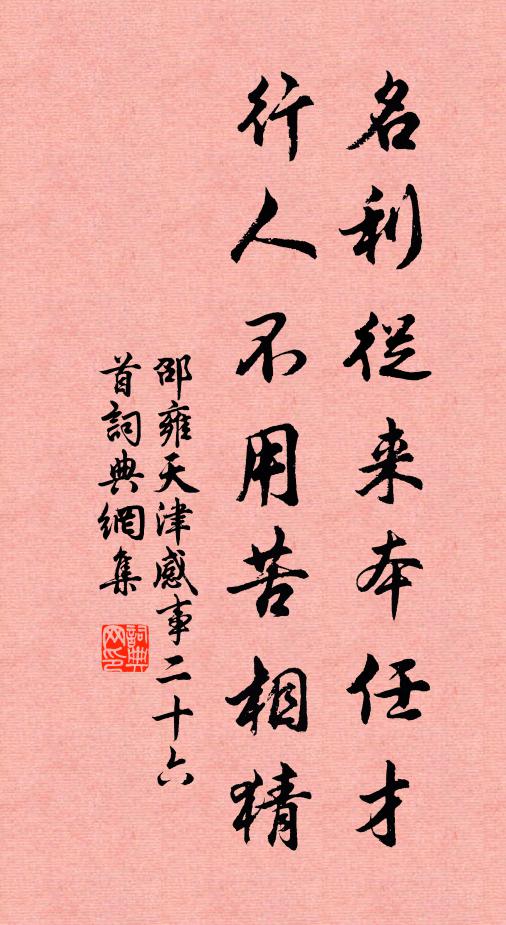 名利從来本任才
行人不用苦相猜
邵雍天津感事二十六
首詞典網集
詞典网印